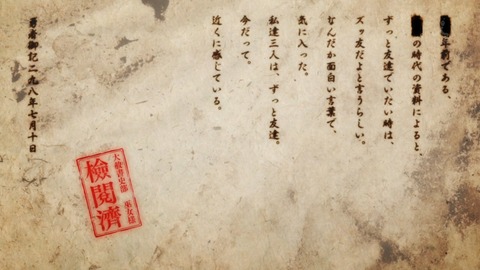 年前である。
の時代の資料によると、
ずっと友達でいたい時は、
ズッ友だよと言うらしい。
なんだか面白い言葉で、
気に入った。
私達三人は、ずっと友達。
今だって。
近くに感じている。
勇者御記二九八年七月十日
大赦書史部
巫女様
検閲済